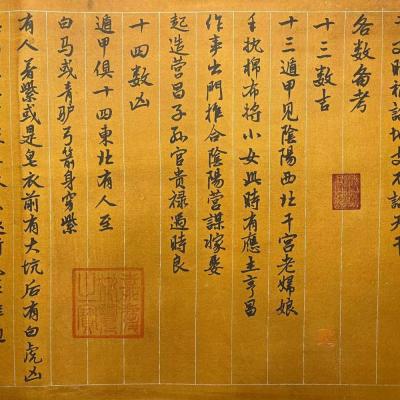 各数备考
十三数吉
十三遁甲见陰陽西北干宫老婦娘
手抱棉布将小女此時有應主亨昌
作事出門推合陰陽营謀嫁娶
起造营昌子孙官貴禄過時良
十四数凶
遁甲俱十四東北有人至
白马或青驴弓箭身穿紫
有人着紫或是皂衣前有大坑后有白虎凶
嘉慶御覽之寶